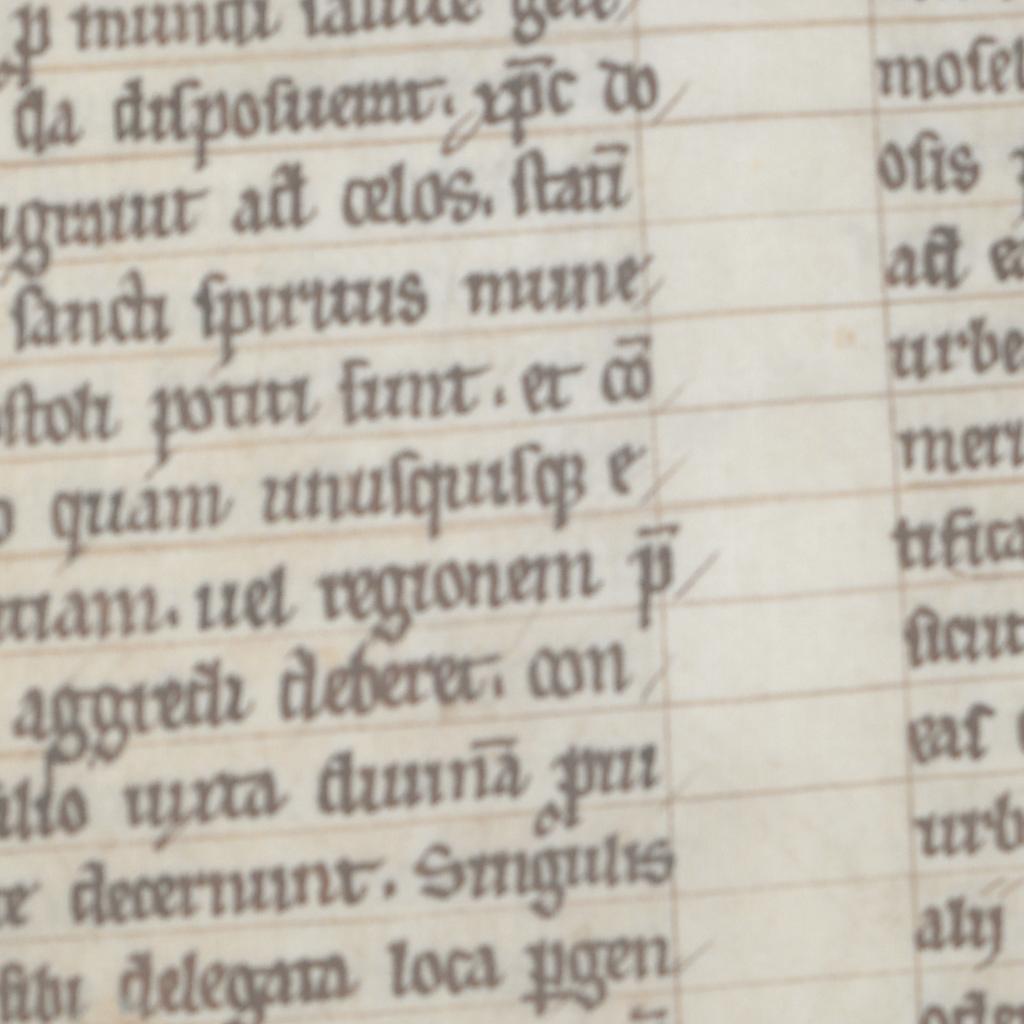 p mundi salute gen
da disposuerat. xp̄c do
ad celos. statī
sancti spiritus mune
potiti sunt. et cō
quam unusquisq; e
uel regionem p̄
aggredi deberet. con
iuxta diuinā pui
decernunt. Singulis
sibi delegata loca ꝑgen
mosel
osis
ad ea
urbe
meri
tifica
sicut
eas
urb
alij